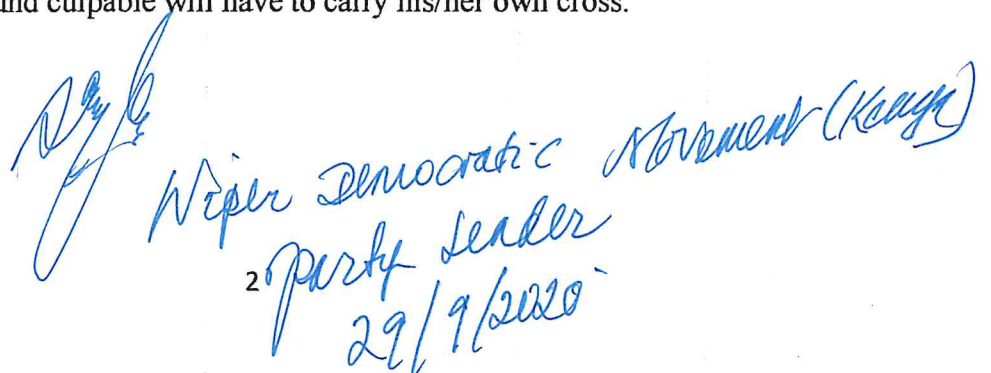 und culpable will have to carry his/her own cross.
Wiper Democratic Movement (Kenya)
Party Leader
2
29/9/2020